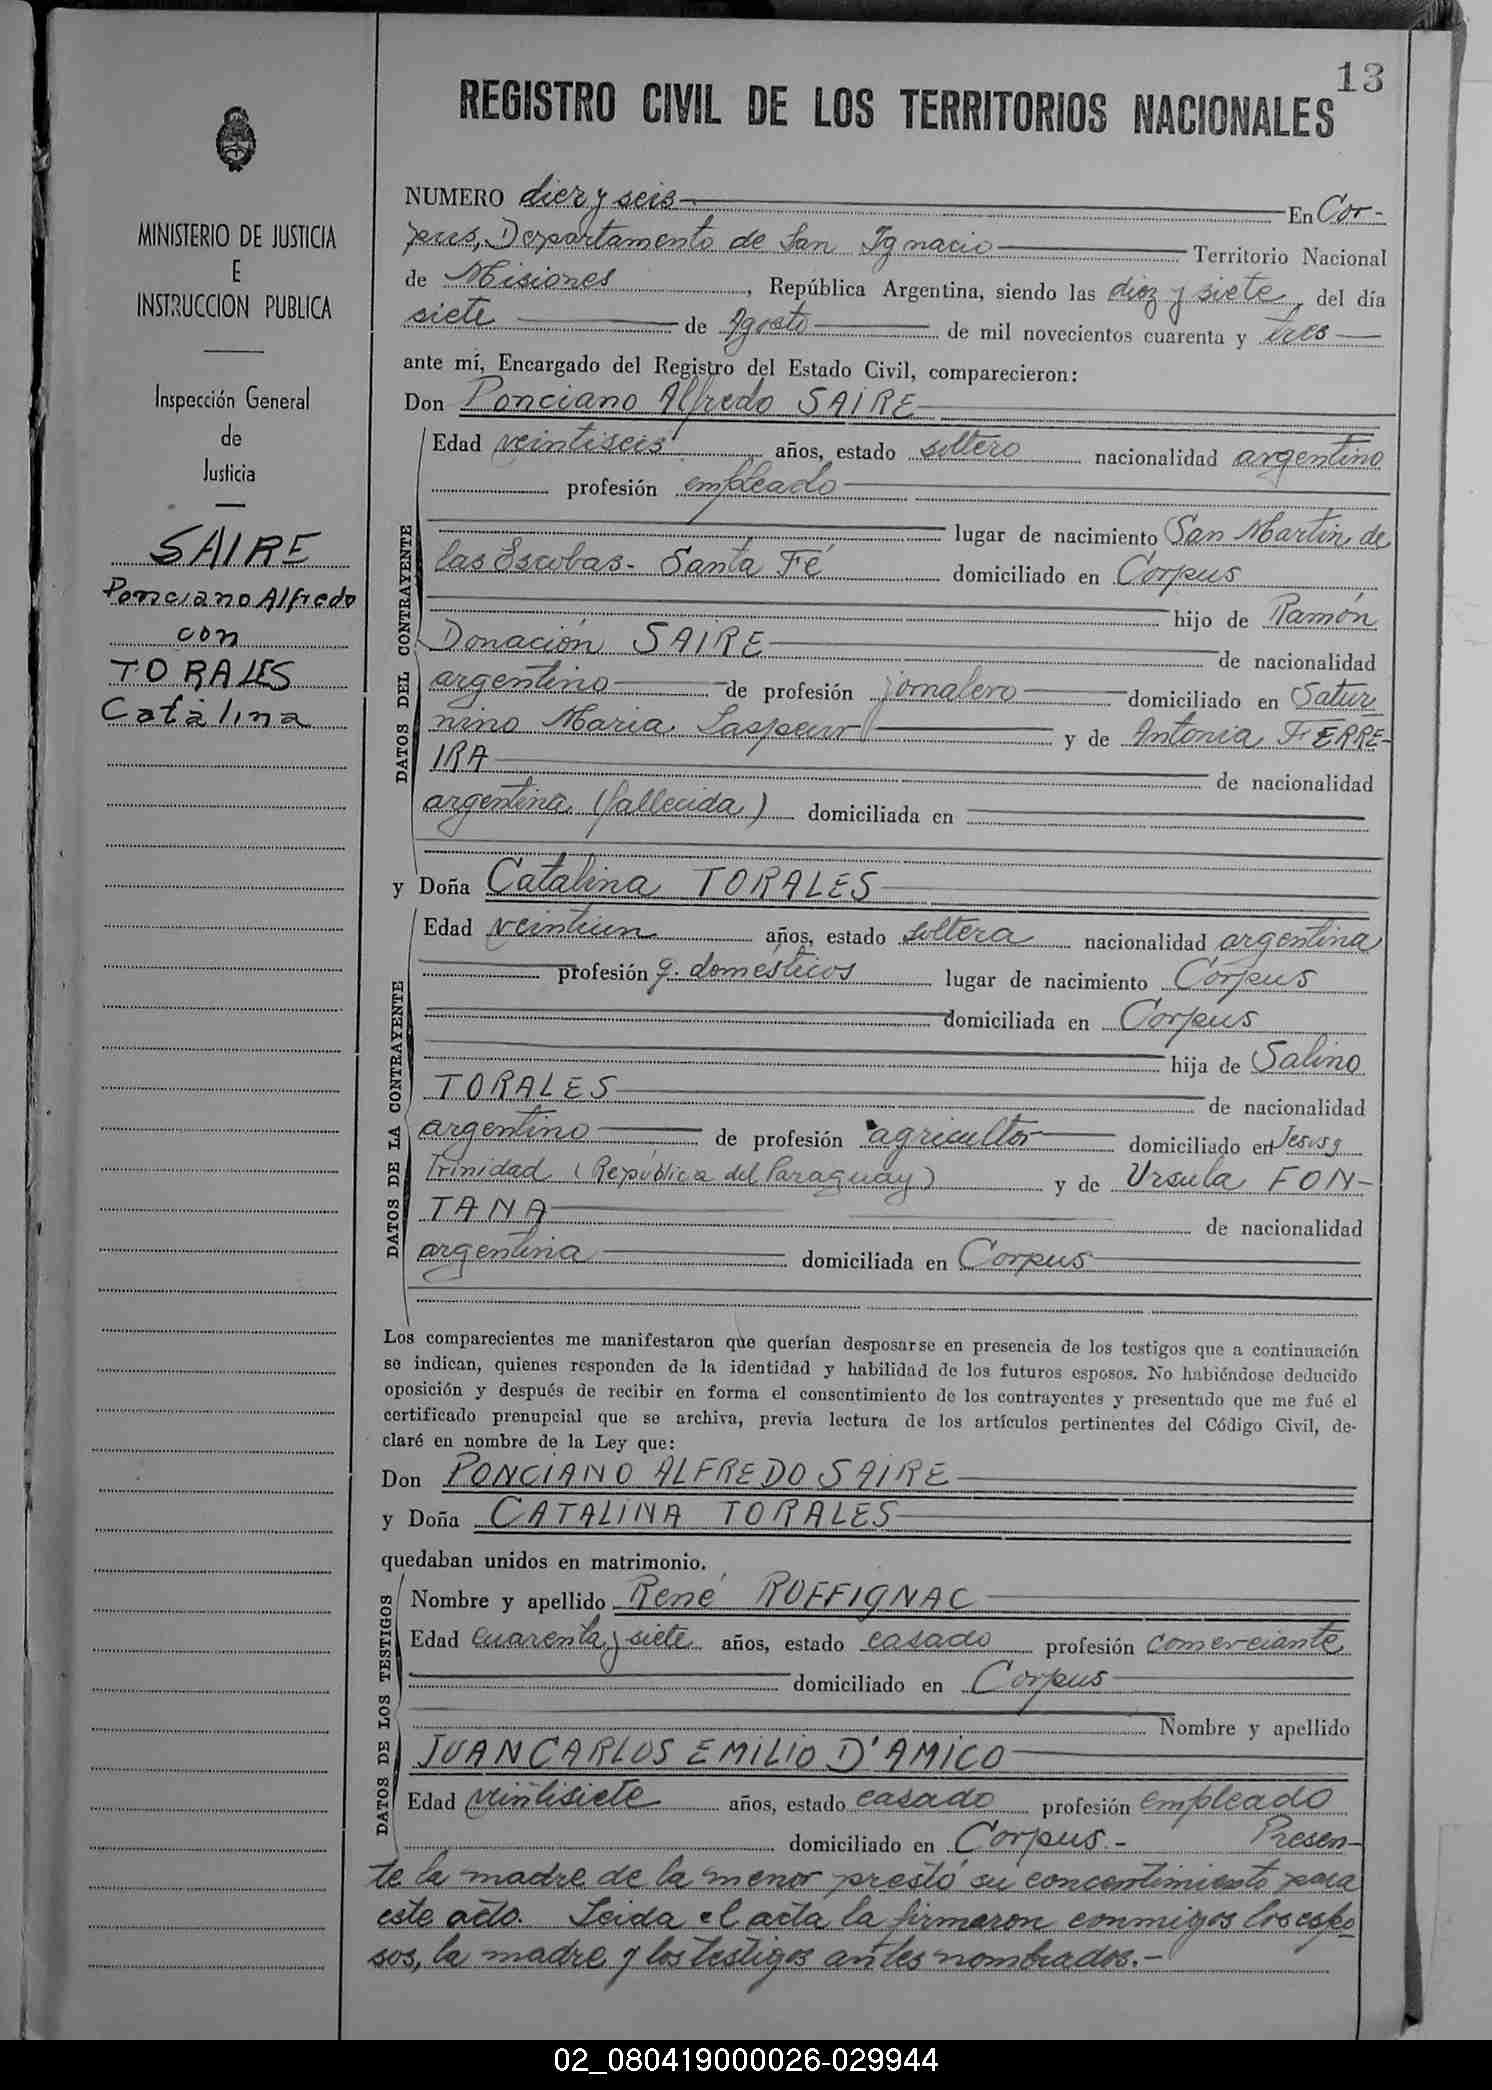 13
REGISTRO CIVIL DE LOS TERRITORIOS NACIONALES
MINISTERIO DE JUSTICIA
E
INSTRUCCION PUBLICA
Inspección General
de
Justicia
SAIRE
Ponciano Alfredo
con
TORALES
Catalina
NUMERO diez y seis En Cor-
pus, Departamento de San Ignacio Territorio Nacional
de Misiones, República Argentina, siendo las diez y siete, del día
siete de Agosto de mil novecientos cuarenta y tres
ante mí, Encargado del Registro del Estado Civil, comparecieron:
Don Ponciano Alfredo SAIRE
DATOS DEL CONTRAYENTE
Edad veintiseis años, estado soltero nacionalidad argentino
profesión empleado
lugar de nacimiento San Martin de
las Escobas - Santa Fé domiciliado en Corpus
hijo de Ramón
Donación SAIRE de nacionalidad
argentino de profesión jornalero domiciliado en Satur
nino Maria Laspeur y de Antonia FERRE-
IRA de nacionalidad
argentina (fallecida) domiciliada en
y Doña Catalina TORALES
DATOS DE LA CONTRAYENTE
Edad veintiun años, estado soltera nacionalidad argentina
profesión q. domésticos lugar de nacimiento Corpus
domiciliada en Corpus
hija de Salino
TORALES de nacionalidad
argentino de profesión agricultor domiciliado en Jesus y
Trinidad (República del Paraguay) y de Ursula FON-
TANA de nacionalidad
argentina domiciliada en Corpus
Los comparecientes me manifestaron que querían desposarse en presencia de los testigos que a continuación
se indican, quienes responden de la identidad y habilidad de los futuros esposos. No habiéndose deducido
oposición y después de recibir en forma el consentimiento de los contrayentes y presentado que me fué el
certificado prenupcial que se archiva, previa lectura de los artículos pertinentes del Código Civil, de-
claré en nombre de la Ley que:
Don PONCIANO ALFREDO SAIRE
y Doña CATALINA TORALES
quedaban unidos en matrimonio.
DATOS DE LOS TESTIGOS
Nombre y apellido René ROFFIGNAC
Edad cuarenta y siete años, estado casado profesión comerciante
domiciliado en Corpus
Nombre y apellido
JUAN CARLOS EMILIO D'AMICO
Edad veintisiete años, estado casado profesión empleado
domiciliado en Corpus.- Presen-
te la madre de la menor prestó su concentimiento para
este acto. Leida el acta la firmaron conmigos los espo-
sos, la madre y los testigos antes nombrados.-
02_080419000026-029944